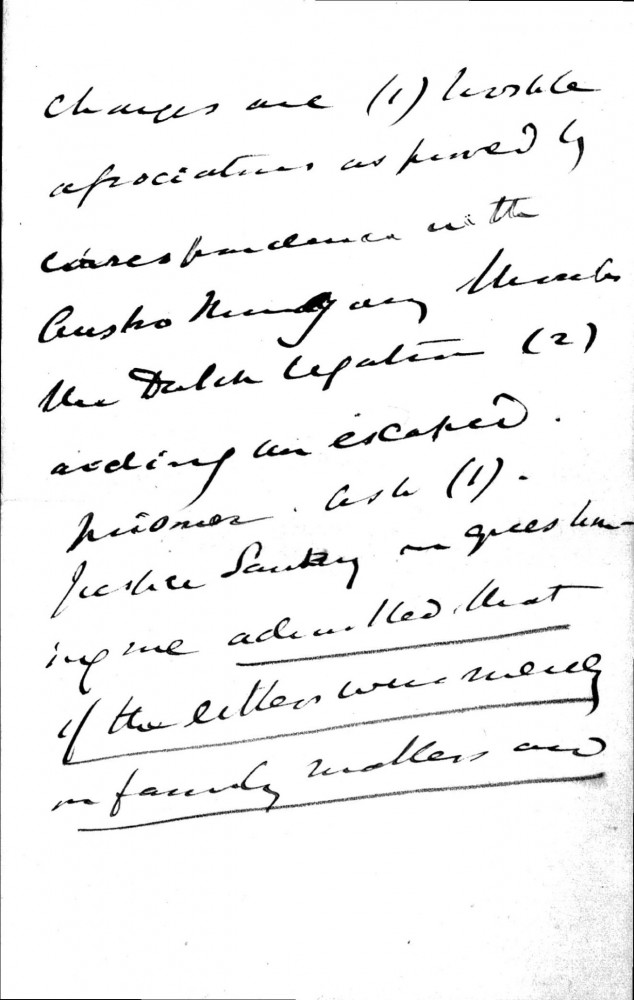 charges are (1) hostile
associations as proved by
correspondence with
Austro Hungary through
the Dutch legation (2)
aiding an escaped
prisoner. As to (1).
Justice Sankey in question-
ing me admitted that
if the letters were merely
on family matters and